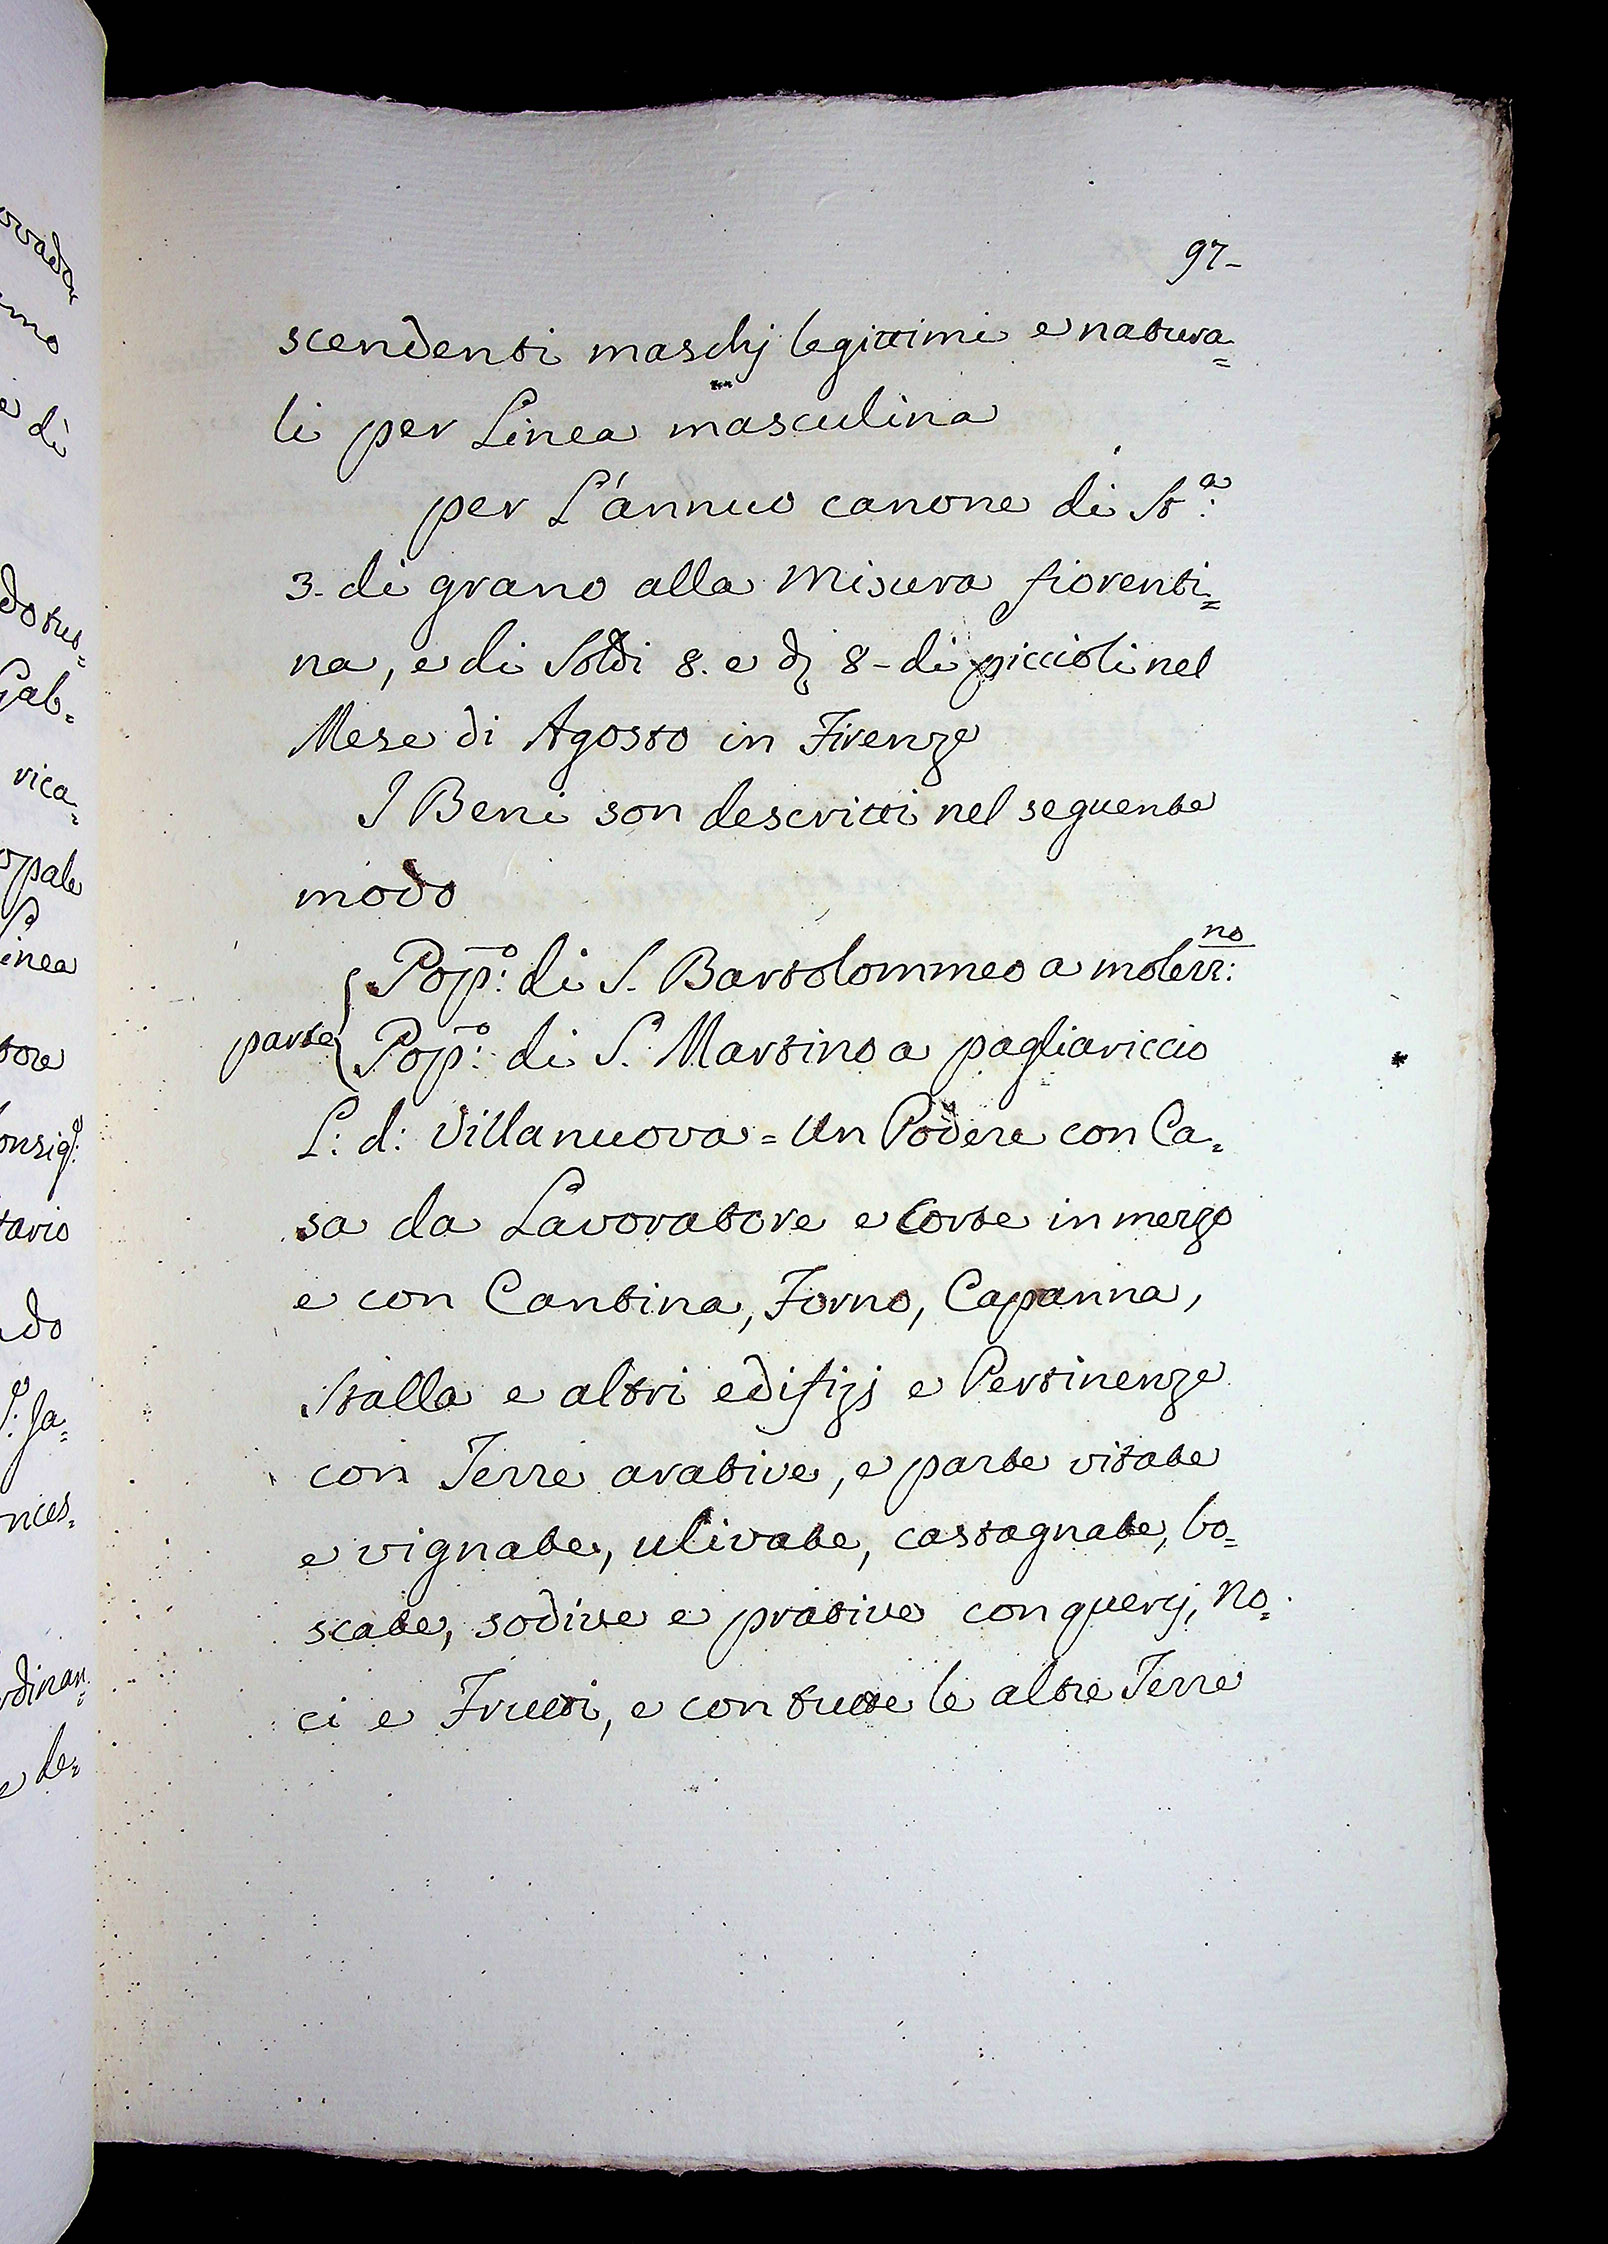 97-
scendenti maschj legittimi e natura=
li per Linea masculina
per L'annuo canone di St.a:
3- di grano alla Misura fiorenti=
na, e di Soldi 8. e d 8- di piccioli nel
Mese di Agosto in Firenze
I Beni son descritti nel seguente
modo
Pop:o di S. Bartolommeo a molerr:no
parte Pop:o di S. Martino a pagliariccio
L: d: Villanuova = Un Podere con Ca=
sa da Lavoratore e Corte in mezzo
e con Cantina, Forno, Capanna,
Stalla e altri edifizj e Pertinenze
con Terre arative, e parte vitate
e vignate, ulivate, castagnate, bo=
scate, sodive e prative con quercj, No=
ci e Frutti, e con tutte le altre Terre
dotus=
Gab=
rica=
inea
tario
e de=